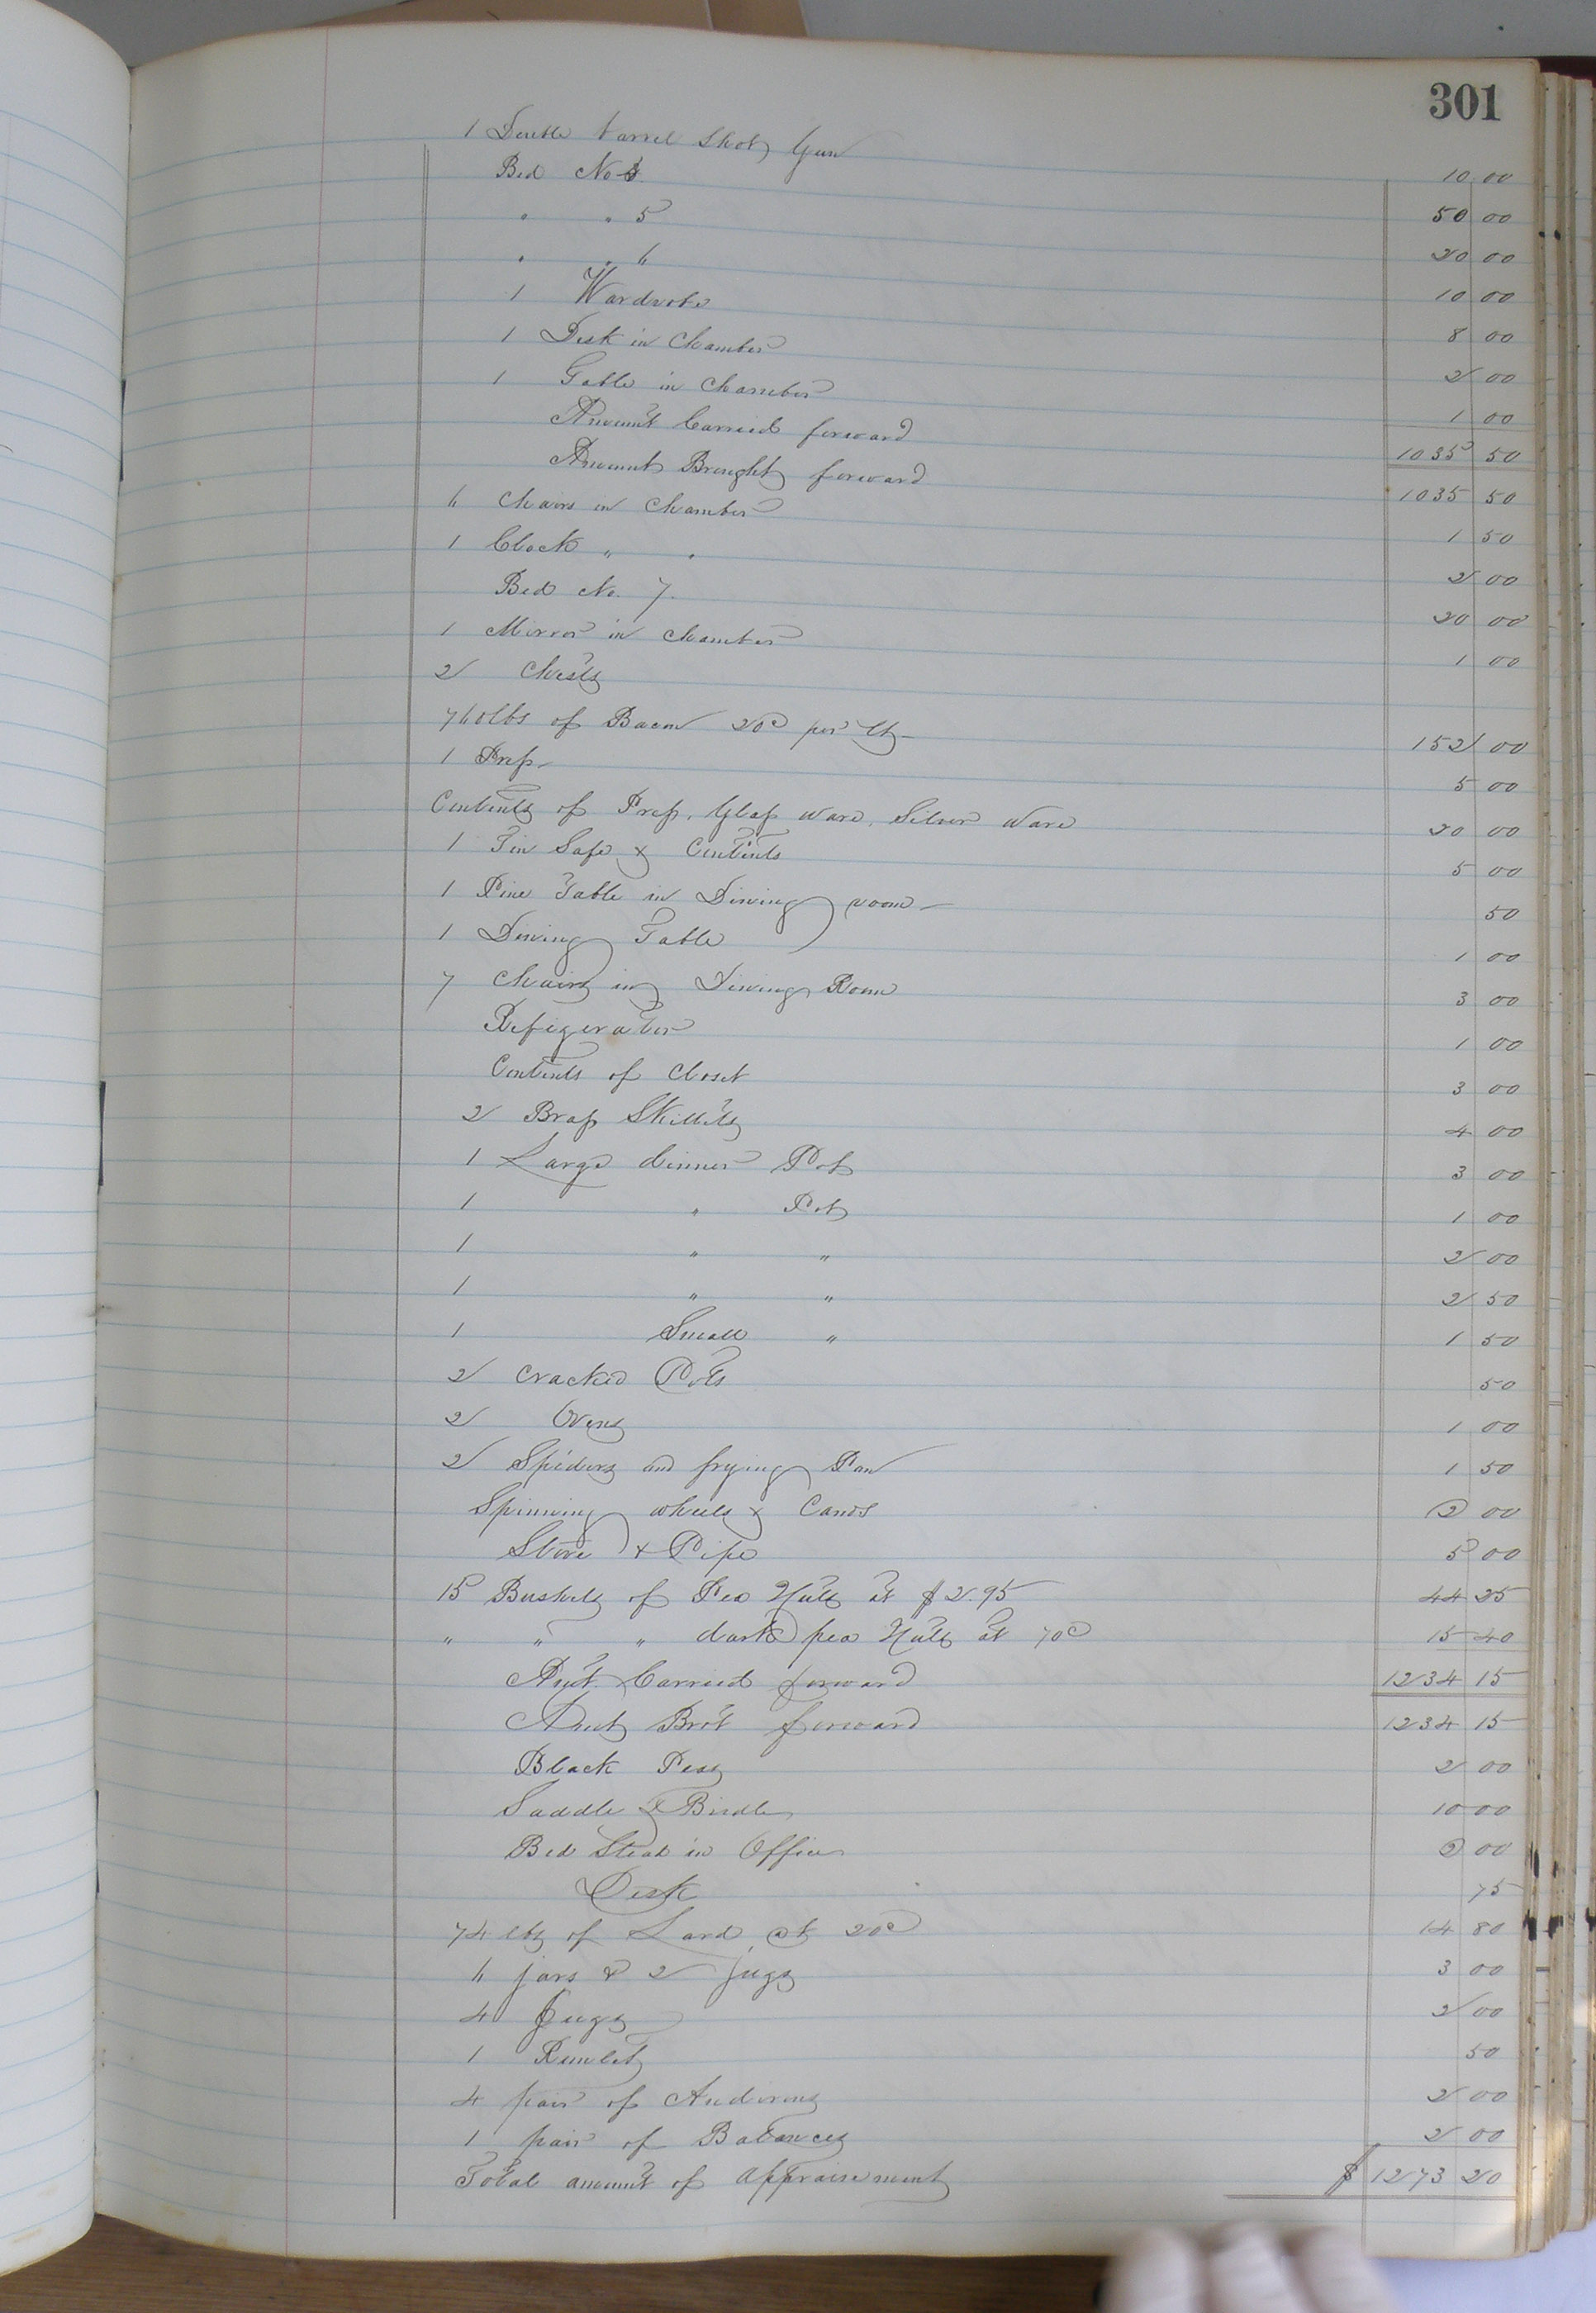 301
1 Double barrel Shot Gun 10 00
Bed No 4 50 00
" " 5 20 00
" " 6 10 00
1 Wardrobe 8 00
1 Desk in Chamber 2 00
1 Table in Chamber 1 00
Amount Carried forward 1035 50
Amount Brought forward 1035 50
6 Chairs in Chamber 1 50
1 Clock " " 2 00
Bed No. 7. 20 00
1 Mirror in Chamber 1 00
2 Chests
760 lbs of Bacon 20c per lb 152 00
1 Press 5 00
Contents of Press, Glass ware, Silver ware 20 00
1 Tin Safe & Contents 5 00
1 Pine Table in Dining room 50
1 Dining Table 1 00
7 Chairs in Dining Room 3 00
Refigerator 1 00
Contents of Closet 3 00
2 Brass Skillets 4 00
1 Large dinner Pot 3 00
1 " Pot 1 00
1 " " 2 00
1 " " 2 50
1 Small " 1 50
2 Cracked Pots 50
2 Ovens 1 00
2 Spiders and frying Pan 1 50
Spinning wheels & Cards 2 00
Stove & Pipe 5 00
15 Bushels of Pea Nuts at $2.95 44 25
" " " dark pea Nuts at 70c 15 40
Amt. Carried forward 1234 15
Amt Brot forward 1234 15
Black Peas 2 00
Saddle & Bridle 10 00
Bed Stead in Office 2 00
Desk 75
74 lbs of Lard at 20c 14 80
6 jars & 2 jugs 3 00
4 Jugs 2 00
1 Runlet 50
4 pair of Andirons 2 00
1 pair of Balances 2 00
Total amount of appraisement $1273 20